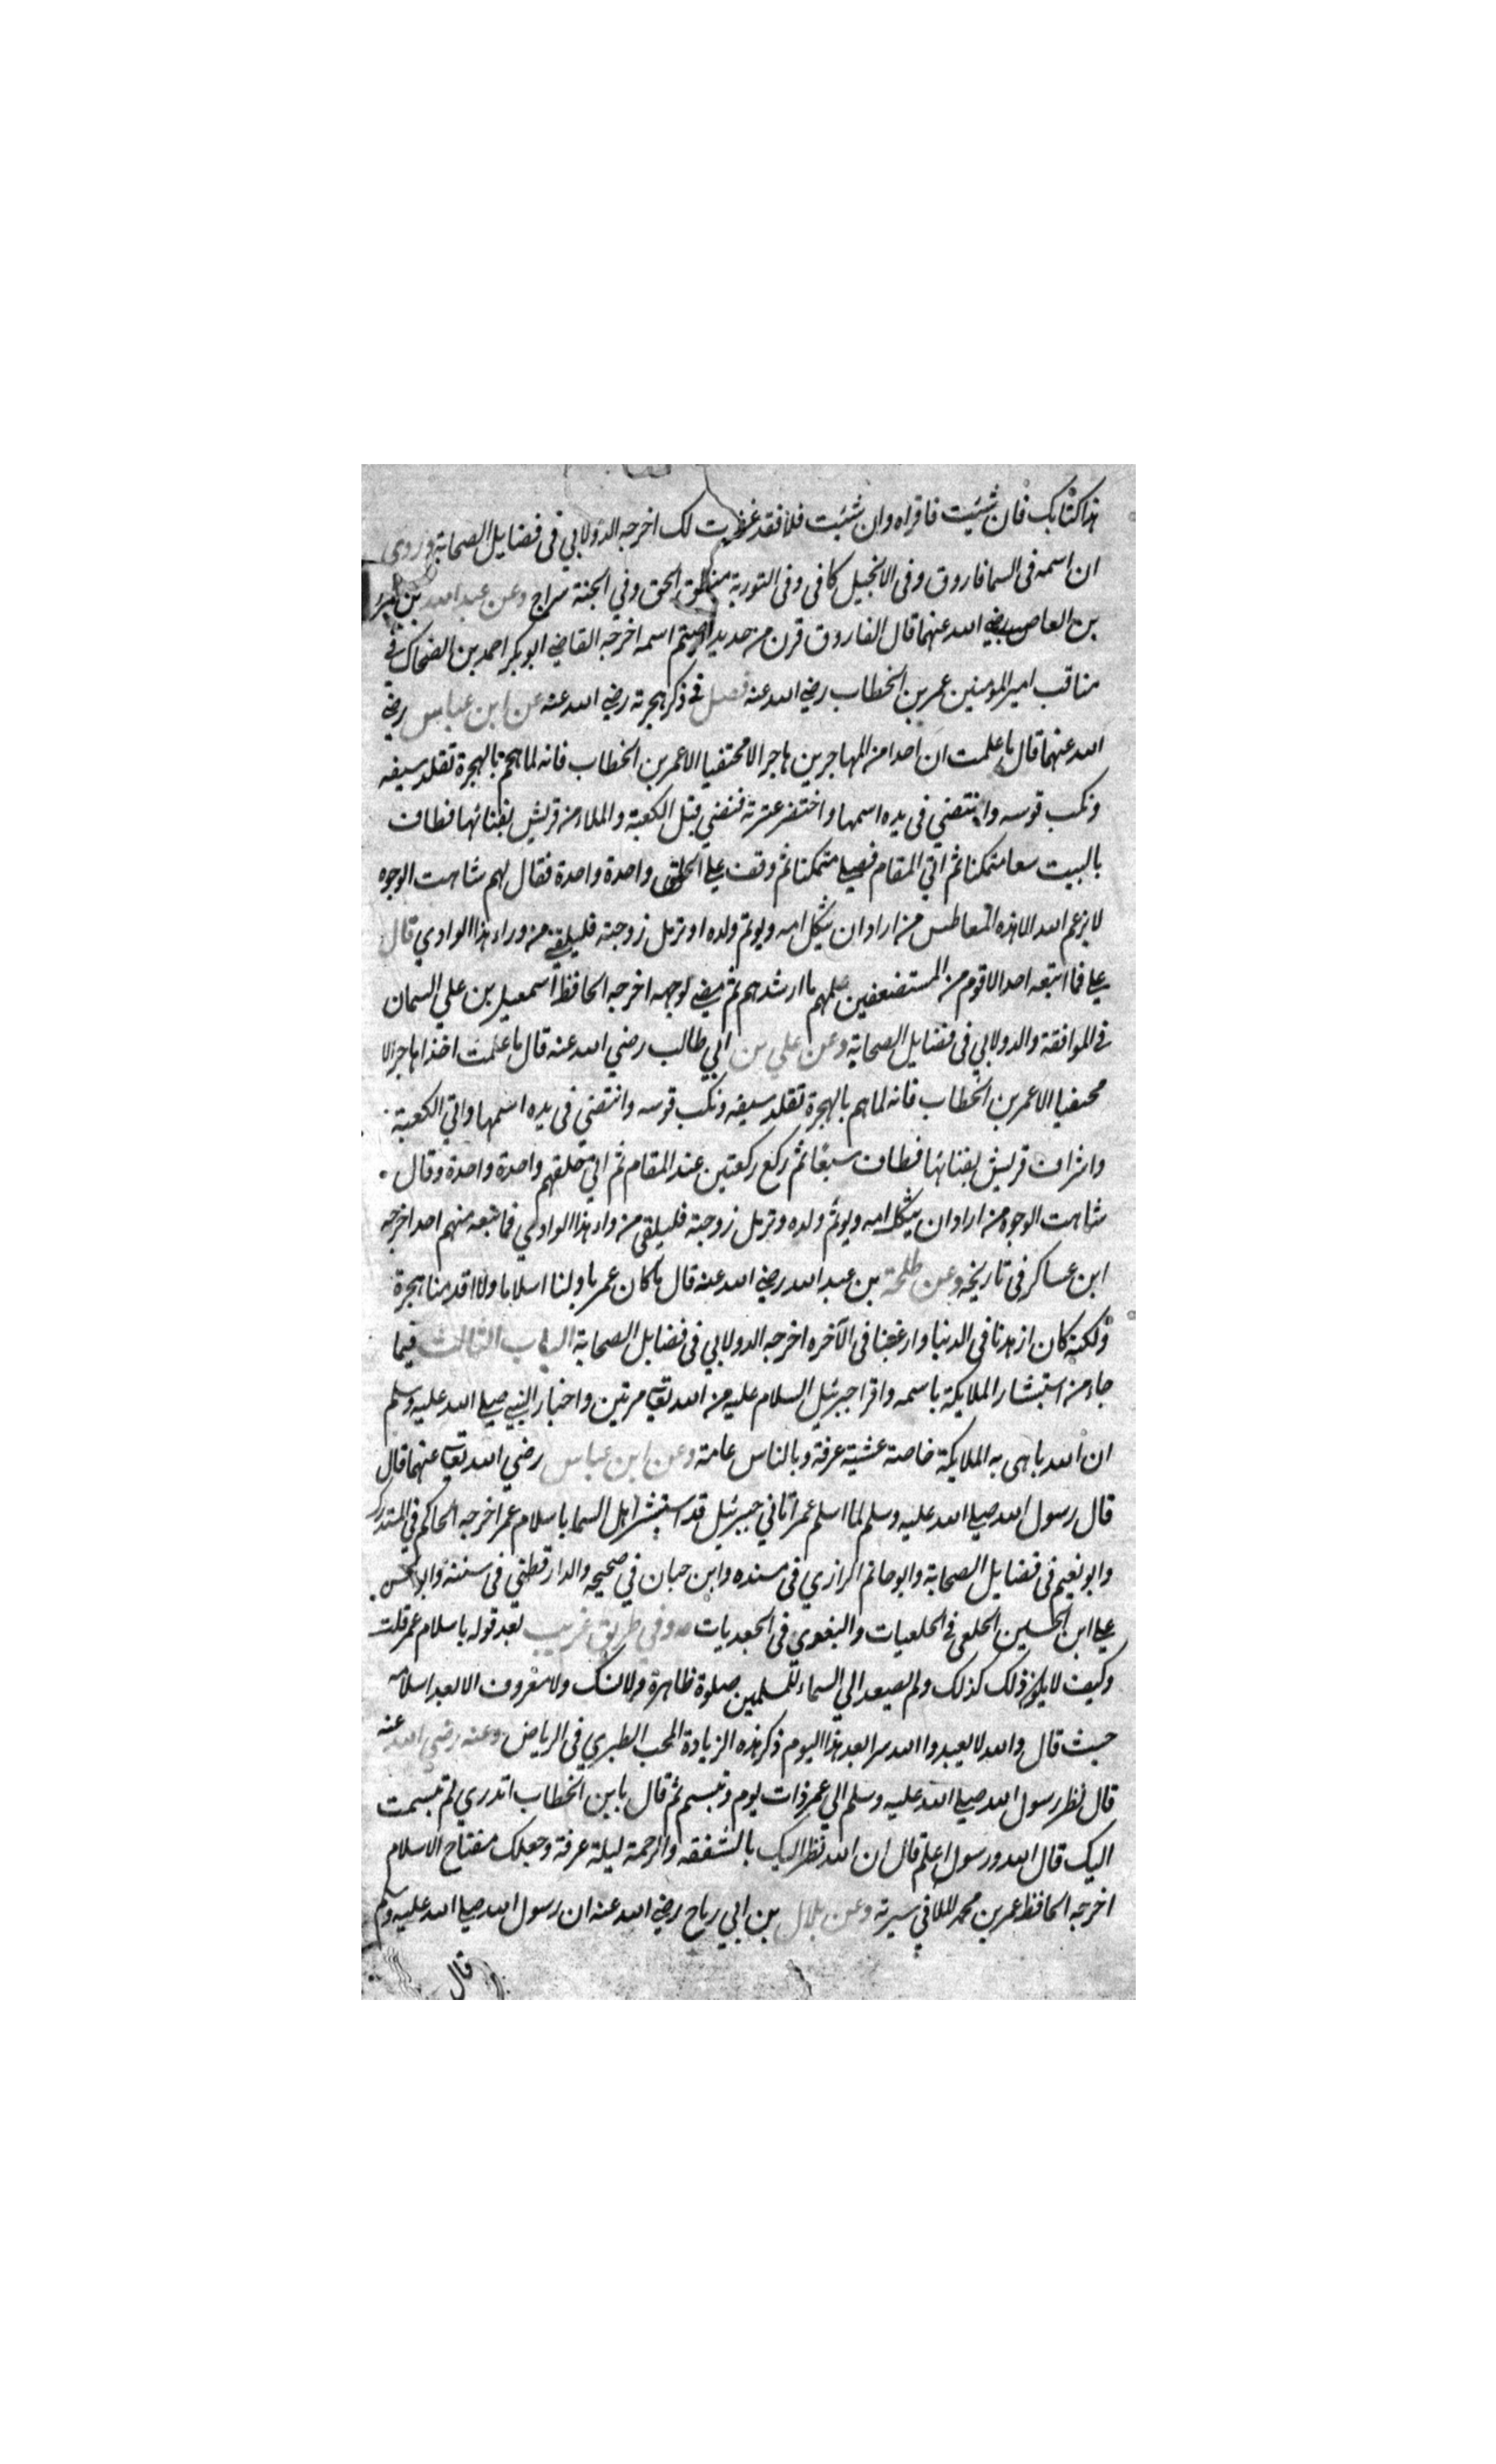 هذا كتابك فان شئيت فاقراه وان شئبت فلا فقد غفرت لك اخرجه الدولابي في فضايل الصحابة وروى
ان اسمه في السما فاروق وفي الانجيل كافي وفي التورية منطق الحق وفي الجنة سراج وعن عبد الله بن
بن العاص رضي الله عنهما قال الفاروق قرن من حديد اسمه اخرجه القاضي ابو بكر احمد بن الضحاك في
مناقب امير المومنين عمر بن الخطاب رضي الله عنه فصل في ذكر هجرته رضي الله عنه عن ابن عباس رضي
الله عنهما قال ما علمت ان احدا من المهاجرين هاجر الا مختفيا الا عمر بن الخطاب فانه لما هم بالهجرة تقلد سيفه
ونكب قوسه وانتضي في يده اسهما واختضر عنزته فمضي قبل الكعبة والملاء من قريش بفنائها فطاف
بالبيت سعا متمكنا ثم اتي المقام فصلي متمكنا ثم وقف علي الحلق واحدة واحدة فقال لهم شاهت الوجوه
لا يرغم الله الا هذه المعاطس من اراد ان يثكل امه ويوتم ولده او ترمل زوجته فليلقني من وراء هذا الوادي قال
علي فما اتبعه احد الا قوم من المستضعفين علمهم ما ارشدهم ثم مضي لوجهه اخرجه الحافظ اسمعيل بن علي السمان
في الموافقة والدولابي في فضايل الصحابة وعن علي بن ابي طالب رضي الله عنه قال ما علمت احدا هاجر الا
مختفيا الا عمر بن الخطاب فانه لما هم بالهجرة تقلد سيفه ونكب قوسه وانتضي في يده اسهما واتي الكعبة
واشراف قريش بفنائها فطاف سبعا ثم ركع ركعتين عند المقام ثم اتي حلقهم واحدة واحدة وقال
شاهت الوجوه من اراد ان يثكل امه ويوتم ولده وترمل زوجته فليلقي من وراء هذا الوادي فما تبعه منهم احد اخرجه
ابن عساكر في تاريخه وعن طلحة بن عبد الله رضي الله عنه قال ما كان عمر باولنا اسلاما ولا اقدمنا هجرة
ولكنه كان ازهدنا في الدنيا وارغبنا في الآخره اخرجه الدولابي في فضايل الصحابة الباب الثالث فيما
جاء من استبشار الملايكة باسمه واقرا جبرئيل السلام عليه من الله تعالى مرتين واخبار النبي صلي الله عليه وسلم
ان الله باهى به الملايكة خاصة عشية عرفة وبالناس عامة وعن ابن عباس رضي الله تعالى عنهما قال
قال رسول الله صلي الله عليه وسلم لما اسلم عمر اتاني جبرئيل قد استبشر اهل السما باسلام عمر اخرجه الحاكم في المستدرك
وابو نعيم في فضايل الصحابة وابو حاتم الرازي في مسنده وابن حبان في صحيحه والدارقطني في سننه وابو الحسن
علي ابن الحسين الخلعي في الخلعيات والبغوي في الجعديات وفي طريق غريب بعد قوله باسلام عمر قلت
وكيف لا يكون ذلك كذلك ولم يصعد الي السماء للمسلمين صلوة ظاهرة ولا نسك ولا معروف الا بعد اسلامه
حيث قال والله لا يعبدوا الله سرا بعد هذا اليوم ذكر هذه الزيادة المحب الطبري في الرياض وعنه رضي الله عنه
قال نظر رسول الله صلي الله عليه وسلم الي عمر ذات يوم وتبسم ثم قال يا بن الخطاب اتدري لم تبسمت
اليك قال الله ورسوله اعلم قال ان الله نظر اليك بالشفقه والرحمة ليلة عرفة وجعلك مفتاح الاسلام
اخرجه الحافظ عمر بن محمد الملا في سيرته وعن بلال بن ابي رباح رضي الله عنه ان رسول الله صلي الله عليه وسلم
قال